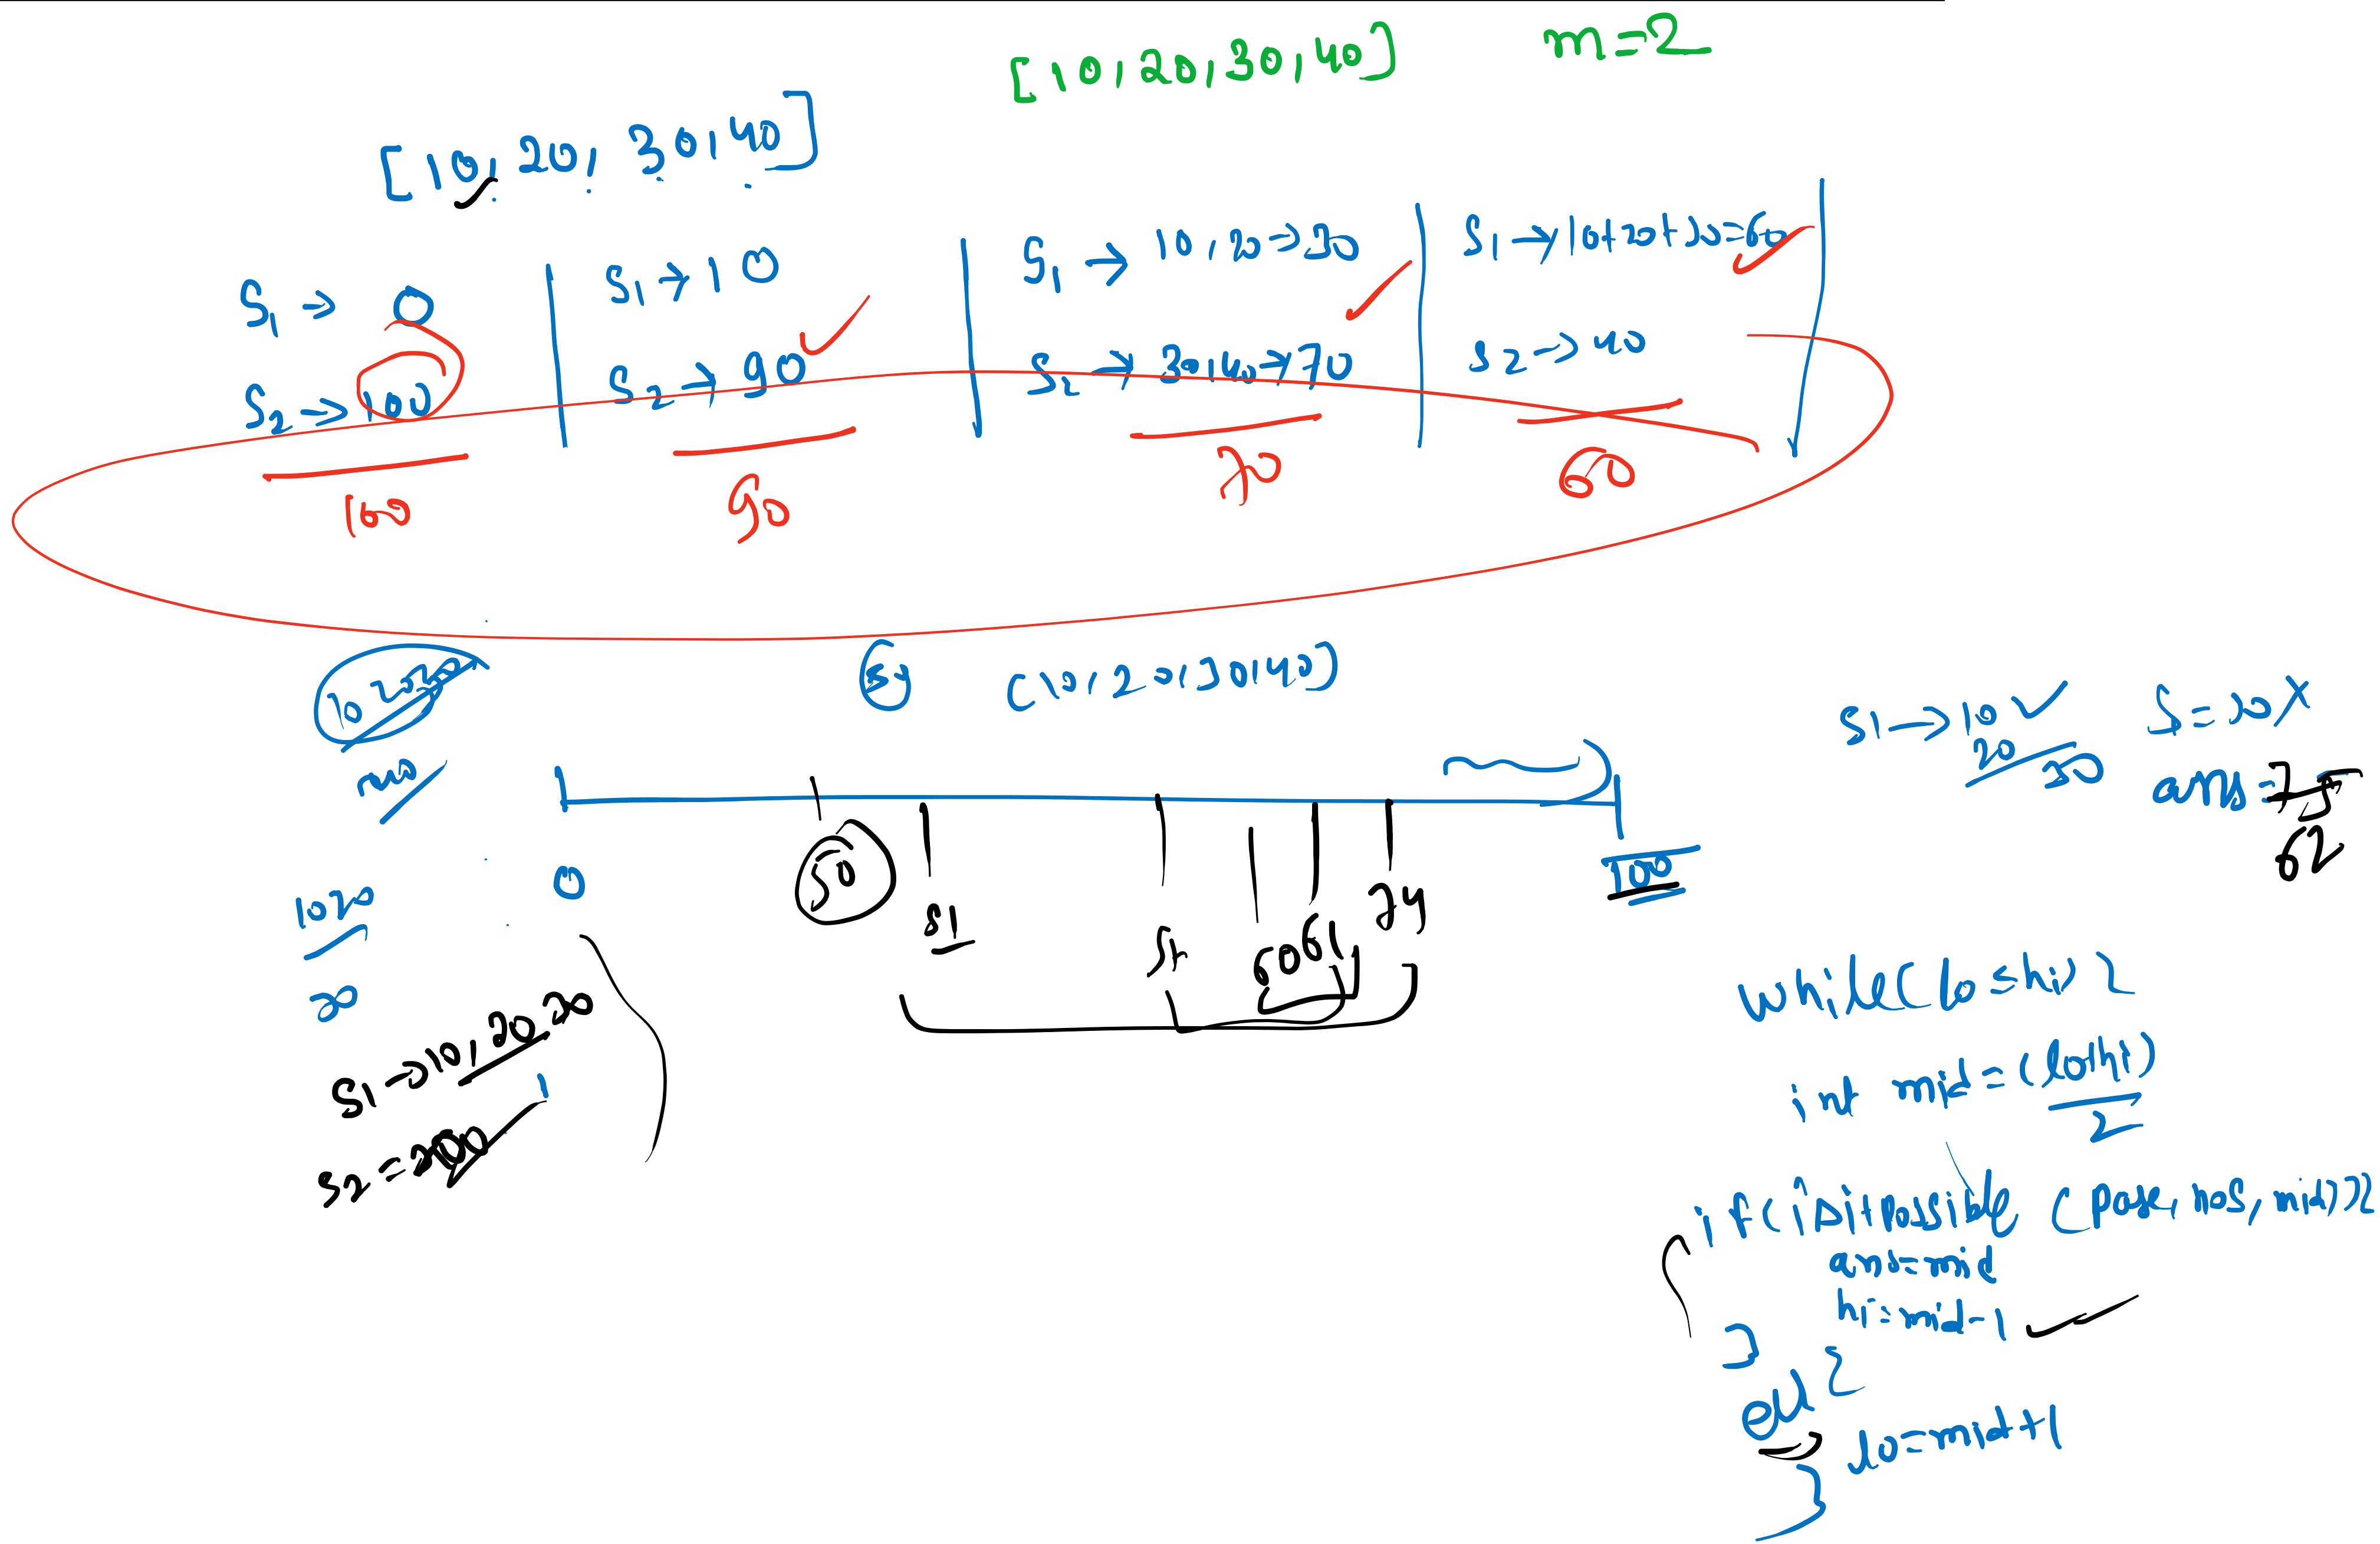 [10,20,30,40] m=2
[10, 20, 30, 40]
S1 → 0
S2 → 100
100
S1 → 10
S2 → 90
90
S1 → 10, 20 → 30
S2 → 30,40 → 70
70
S1 → 10+20+30=60
S2 → 40
60
50 (10,20,30,40)
0
50
51
60
74
100
S1 → 10
20
30
ans=75
62
10 20
S1 → 10, 20, 30
while(lo≤hi) {
int mid = (lo+hi)
2
if(isitpossible (page, nos, mid)){
ans=mid
hi=mid-1
}
else {
lo=mid+1
}